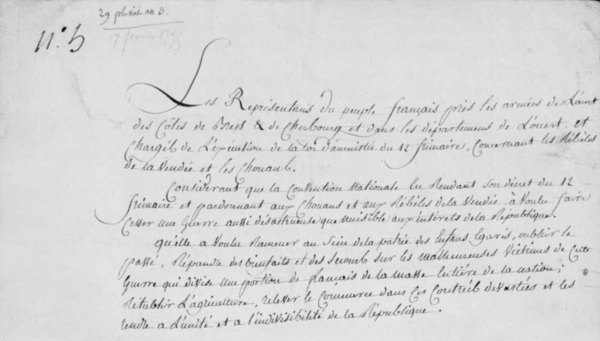 29 pluviôse an 3.
17 février 1795
N.° 5
Les Représentans du peuple français près les armées de L'ouest
des Côtes de Brest & de Cherbourg et dans les départemens de L'ouest, et
Chargés de L'exécution de la loi d'amnistie du 12 frimaire, Concernant les Rébèles
de la Vendée et les Chouans.
Considérant que la Convention Nationale En Rendant son décret du 12
frimaire et pardonnant aux Chouans et aux Rébèles de la Vendée, a Voulu faire
Cesser Une Guerre aussi désastreuse que Nuisible aux intérets de la République.
qu'elle a Voulu Ramener au Sein de la patrie des Enfans Egarés, oublier le
passé, Répandre des bienfaits et des Secours sur les Malheureuses Victimes de Cette
Guerre qui divise Une portion de français de la Masse Entière de la nation;
Rétablir L'agriculture, relever le Commerce dans Ces Contrées dévastées et les
rendre a L'unité et a l'indivisibilité de la République.